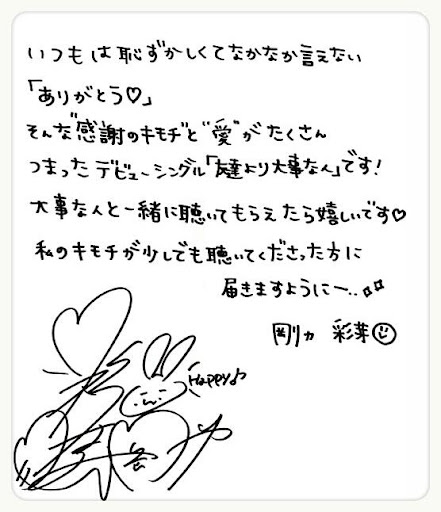 いつもは恥ずかしくてなかなか言えない
「ありがとう♡」
そんな"感謝のキモチ"と"愛"がたくさん
つまったデビューシングル「友達より大事な人」です!
大事な人と一緒に聴いてもらえたら嬉しいです♡
私のキモチが少しでも聴いてくださった方に
届きますようにー..
剛力 彩芽
Happy♪